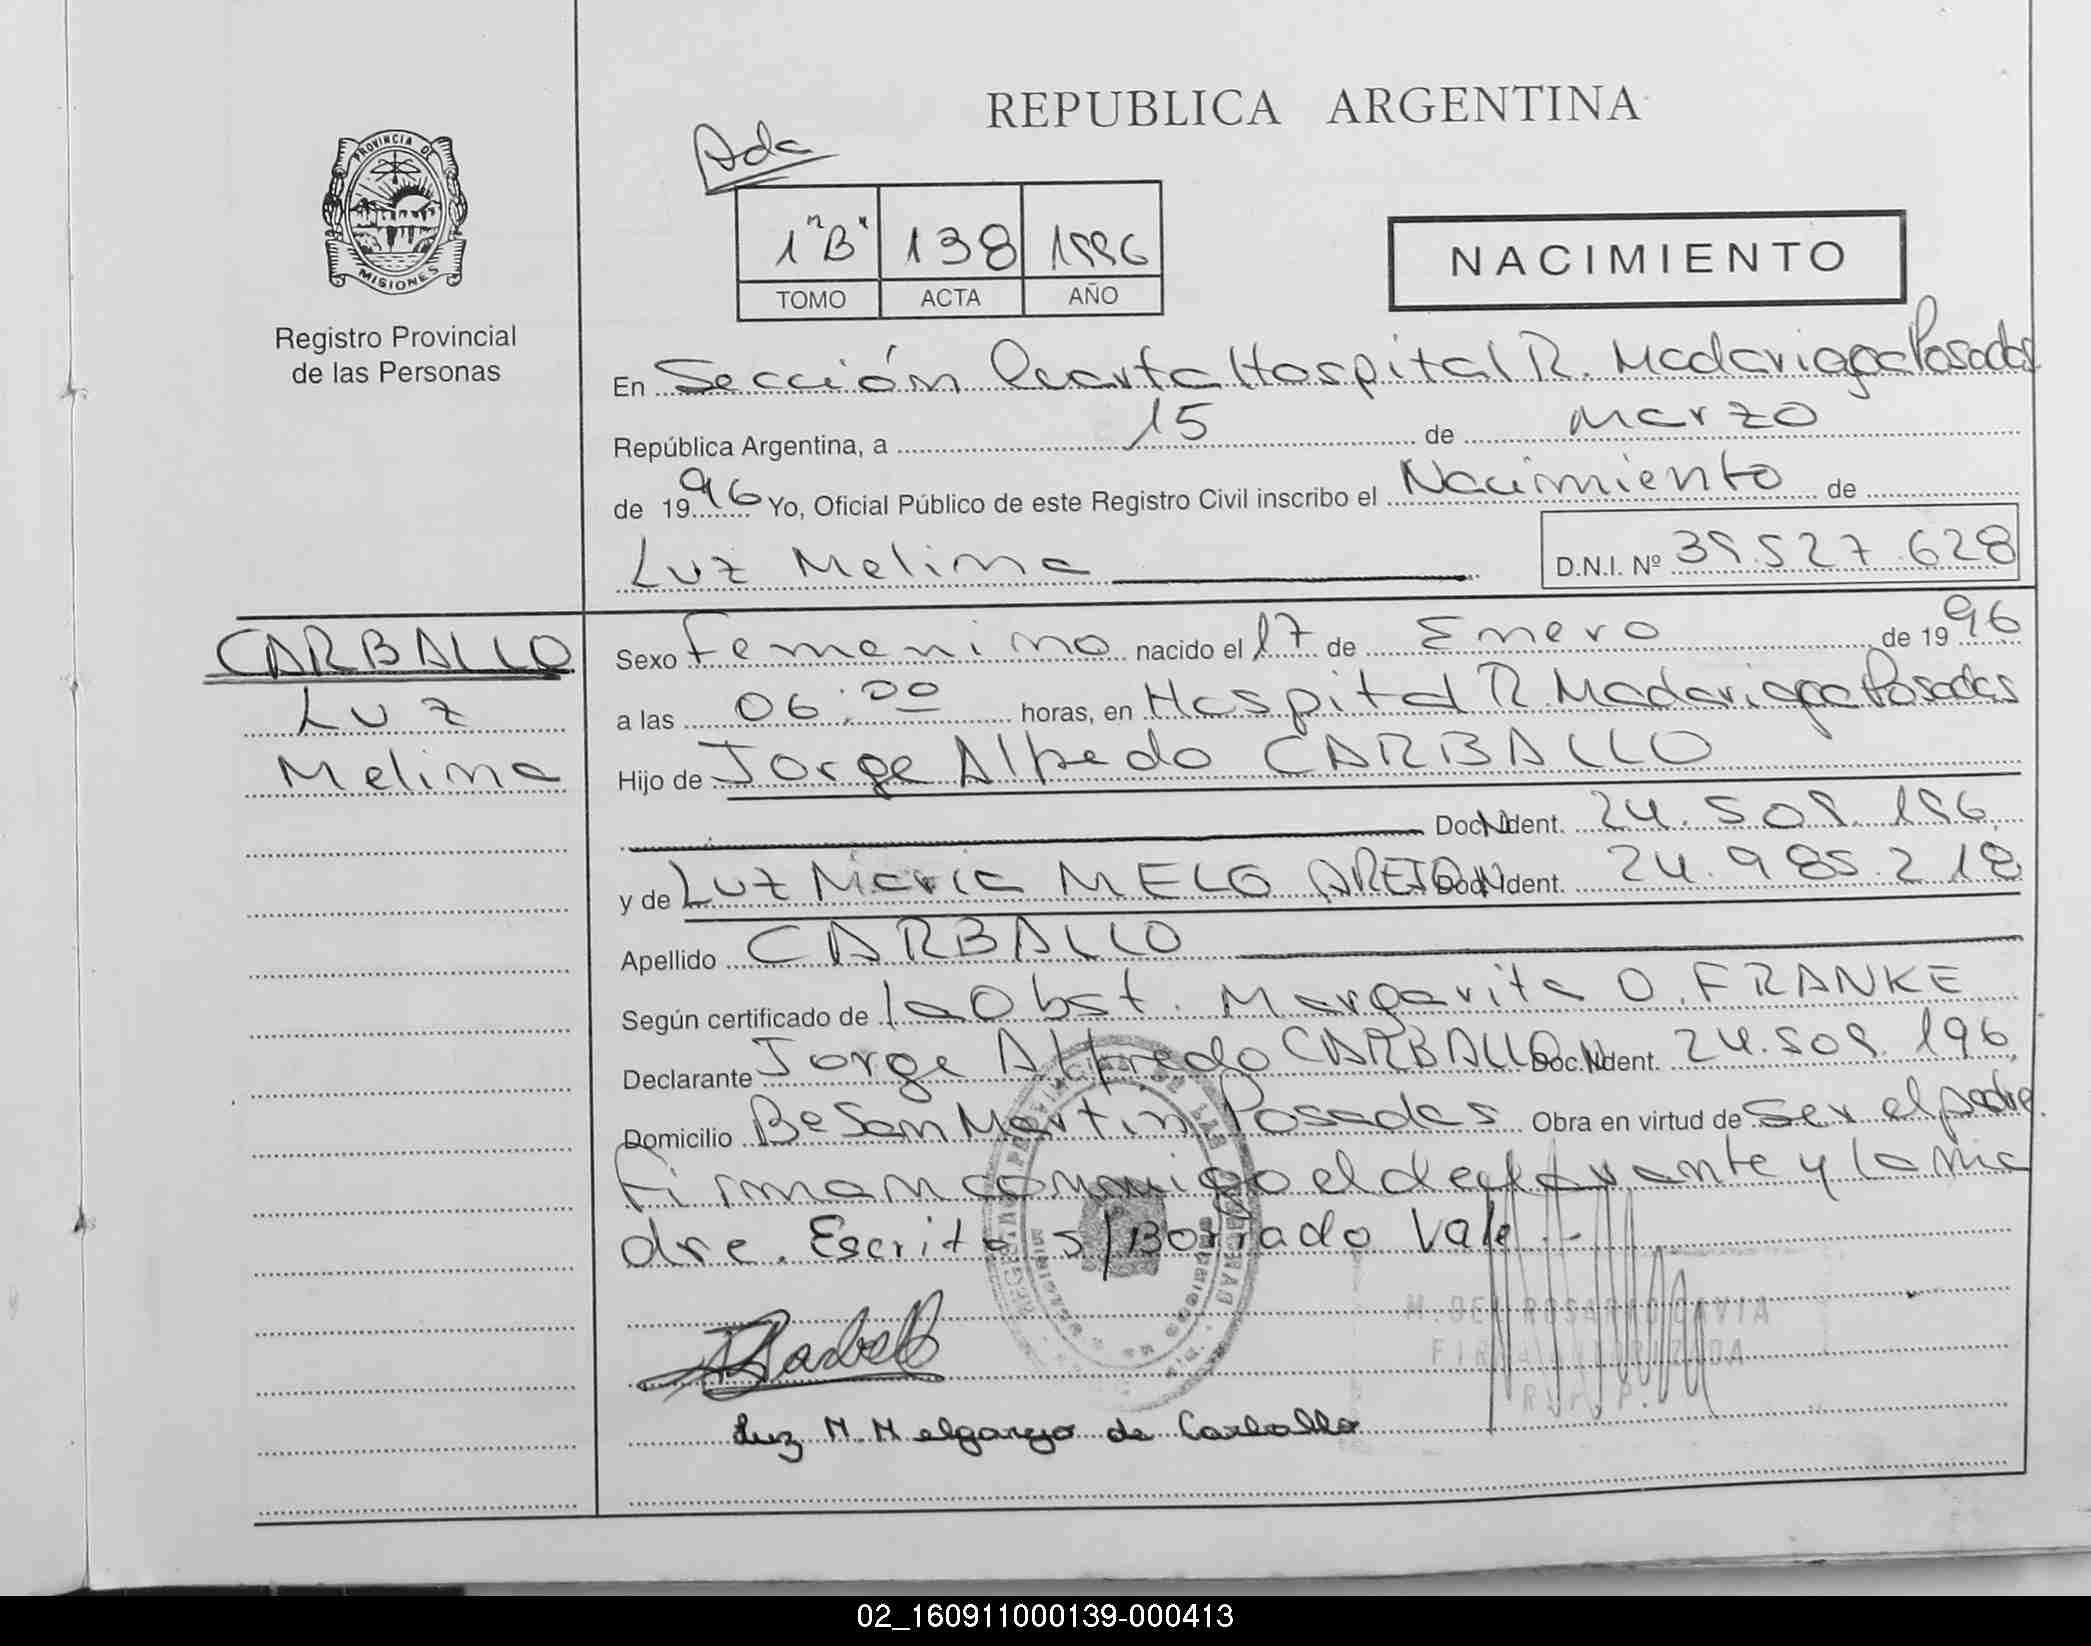 REPUBLICA ARGENTINA
PROVINCIA DE
MISIONES
Registro Provincial
de las Personas
Ada
1 "B" 138 1996
TOMO ACTA AÑO
NACIMIENTO
En Sección Cuarta Hospital R. Madariaga Posadas
República Argentina, a 15 de Marzo
de 1996 Yo, Oficial Público de este Registro Civil inscribo el Nacimiento de
Luz Melina D.N.I. Nº 39.527.628
CARBALLO
Luz
Melina
Sexo Femenino nacido el 17 de Enero de 1996
a las 06:00 horas, en Hospital R. Madariaga Posadas
Hijo de Jorge Alfredo CARBALLO
Doc. Ident. 24.509.196
y de Luz Maria MELGAREJO Doc. Ident. 24.985.218
Apellido CARBALLO
Según certificado de la Obst. Margarita O. FRANKE
Declarante Jorge Alfredo CARBALLO Doc. Ident. 24.509.196
Domicilio Be San Martin Posadas Obra en virtud de Ser el padre.
Firman conmigo el declarante y la ma
dre. Escrito s/Borrado Vale.-
M. DEL ROSARIO GAVIA
FIRMA AUTORIZADA
R. P. P.
Luz M. Melgarejo de Carballo
02_160911000139-000413